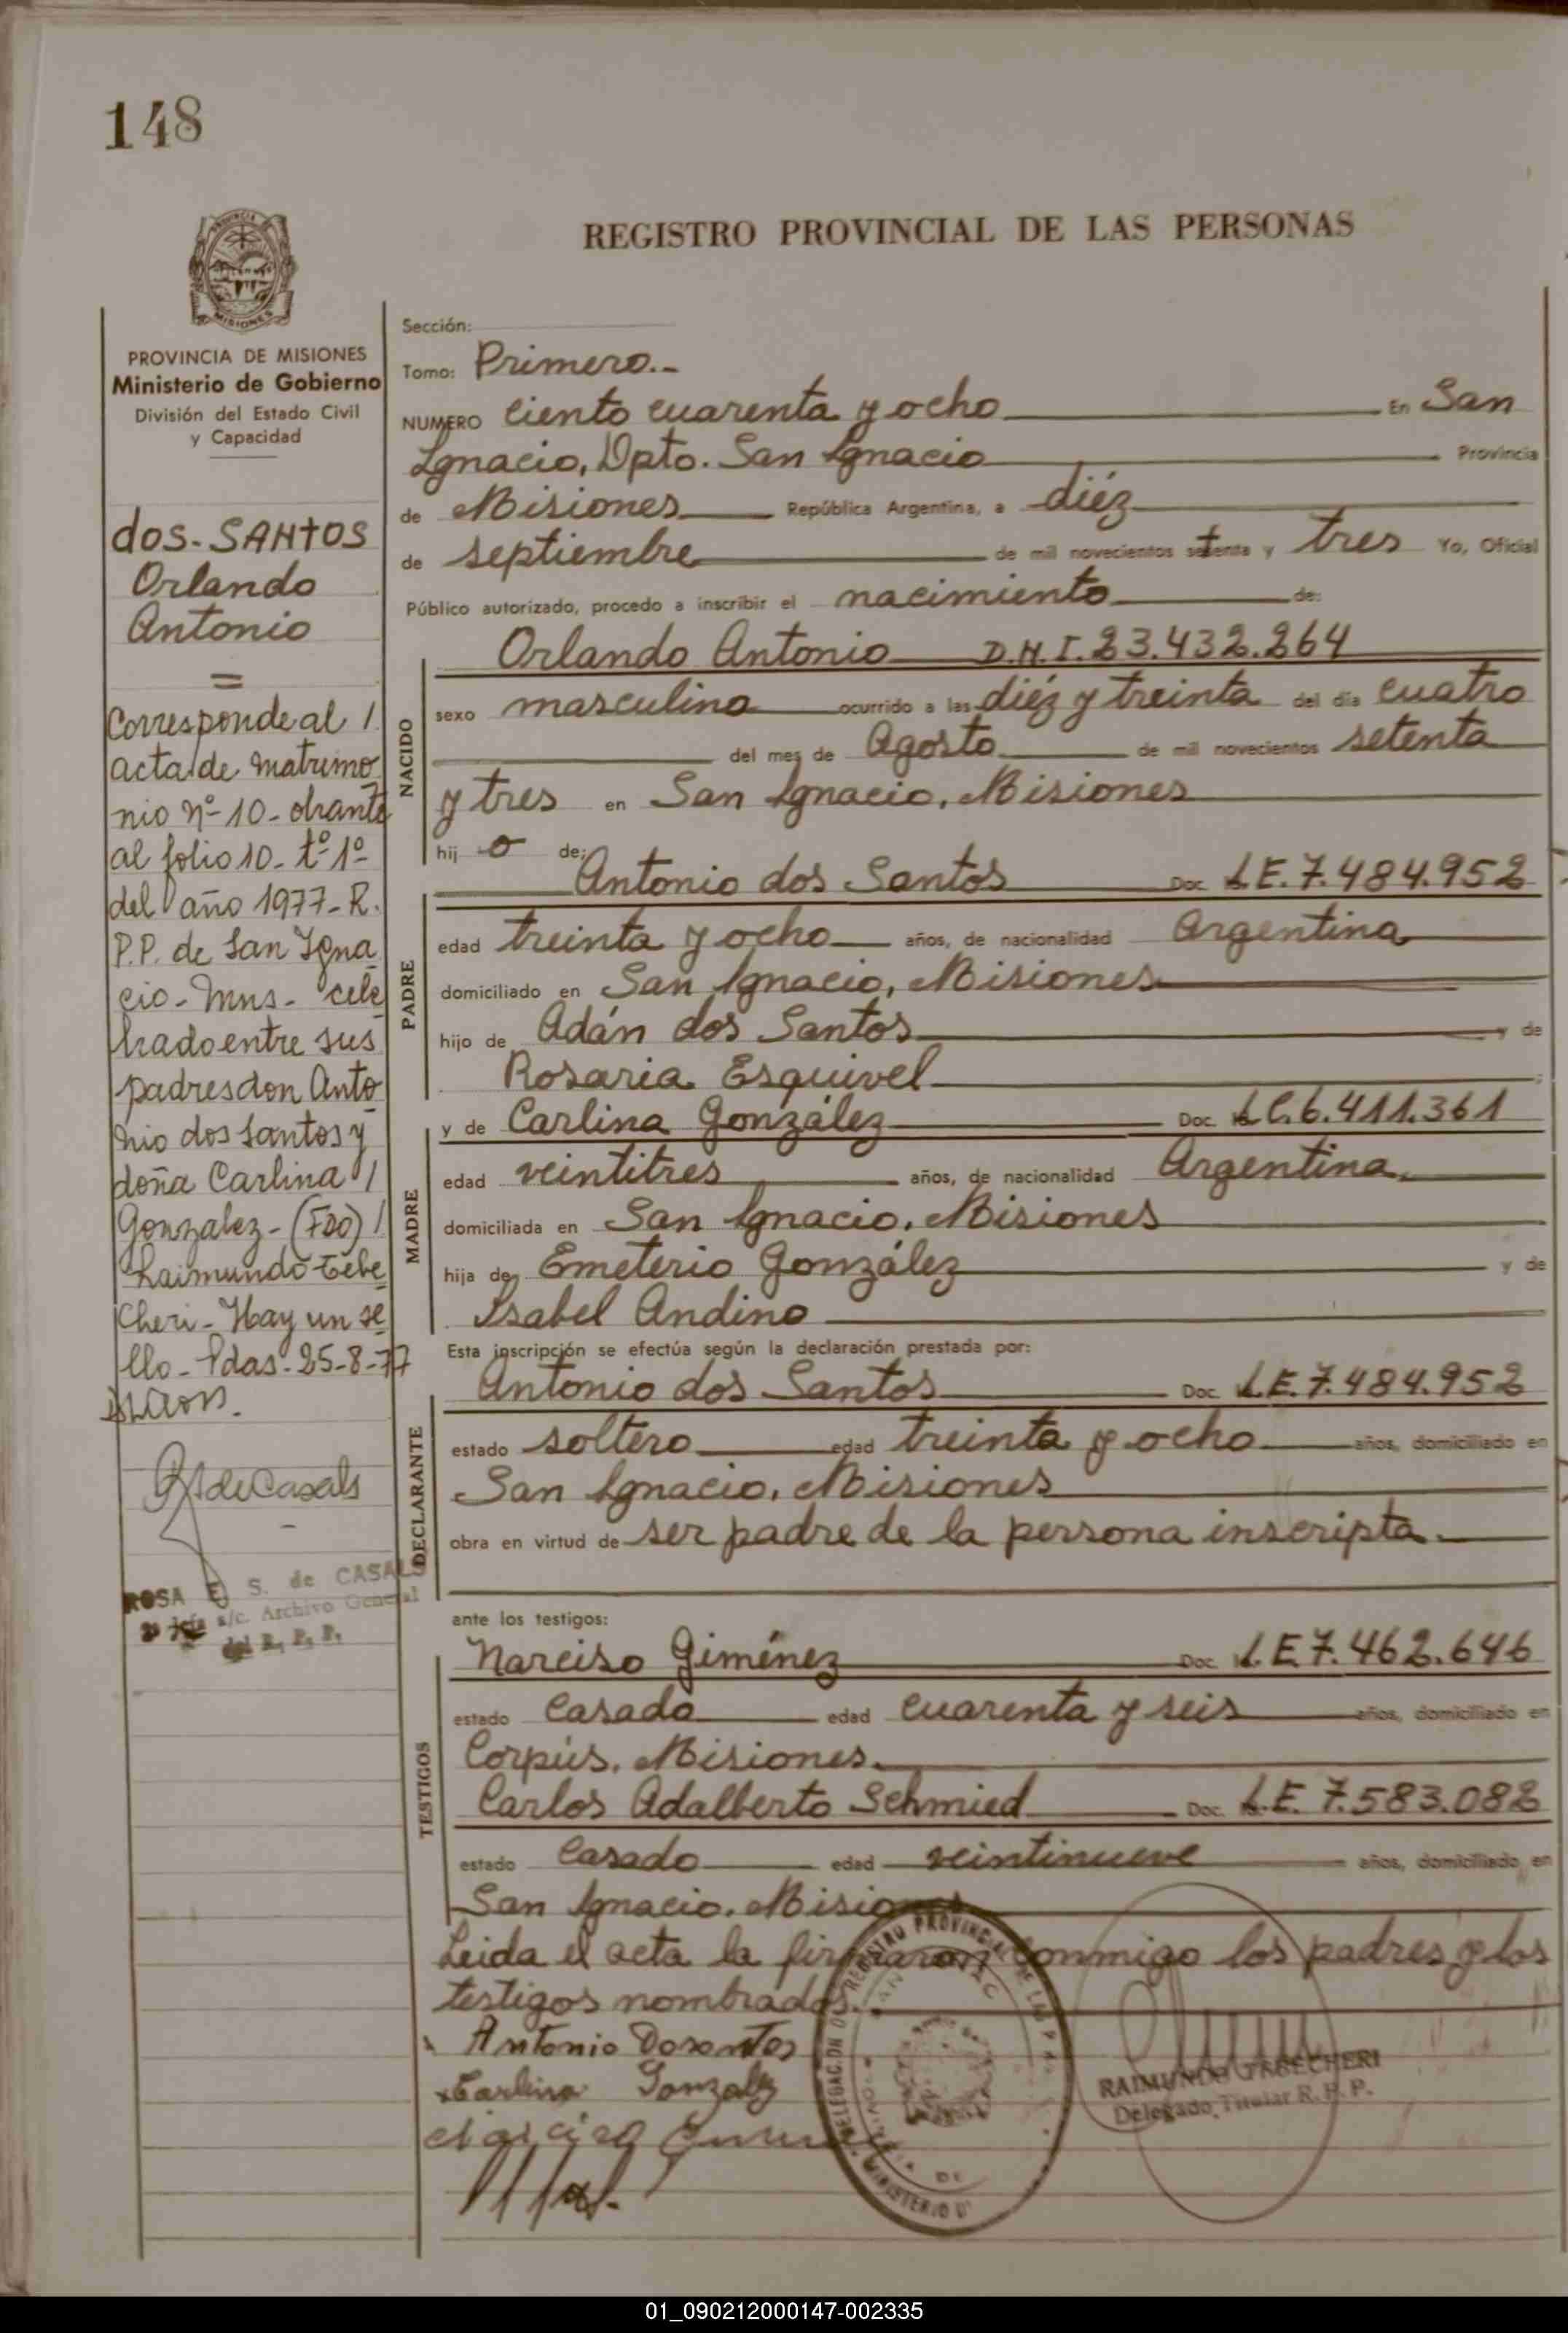 148
REGISTRO PROVINCIAL DE LAS PERSONAS
PROVINCIA
MISIONES
PROVINCIA DE MISIONES
Ministerio de Gobierno
División del Estado Civil
y Capacidad
dos-SANTOS
Orlando
Antonio
=
Corresponde al /
acta de matrimo
nio nº 10- obrante
al folio 10- tº 1º
del año 1977- R.
P.P. de San Igna
cio- Mns- cele
brado entre sus
padres don Anto
nio dos Santos y
doña Carlina /
Gonzalez- (FDO) /
Raimundo Tebe
cheri- Hay un se
llo- Pdas- 25-8-77
deCasals
ROSA E. S. de CASALS
a/c. Archivo General
del R. P. P.
Sección:
Tomo: Primero.-
NUMERO Ciento cuarenta y ocho En San
Ignacio, Dpto. San Ignacio Provincia
de Misiones República Argentina, a diéz
de septiembre de mil novecientos setenta y tres Yo, Oficial
Público autorizado, procedo a inscribir el nacimiento de:
NACIDO
Orlando Antonio D.N.I. 23.432.264
sexo masculino ocurrido a las diéz y treinta del día cuatro
del mes de Agosto de mil novecientos setenta
y tres en San Ignacio, Misiones
hij o de:
PADRE
Antonio dos Santos Doc L.E. 7.484.952
edad treinta y ocho años, de nacionalidad Argentina
domiciliado en San Ignacio, Misiones
hijo de Adán dos Santos y de
Rosaria Esquivel ;
MADRE
y de Carlina González Doc. L.C. 6.411.361
edad veintitres años, de nacionalidad Argentina.
domiciliada en San Ignacio, Misiones
hija de Emeterio González y de
Isabel Andino
Esta inscripción se efectúa según la declaración prestada por:
DECLARANTE
Antonio dos Santos Doc. L.E. 7.484.952
estado soltero edad treinta y ocho años, domiciliado en
San Ignacio, Misiones
obra en virtud de ser padre de la persona inscripta.
ante los testigos:
TESTIGOS
Narciso Giménez Doc. L.E. 7.462.646
estado Casado edad cuarenta y seis años, domiciliado en
Corpús. Misiones.
Carlos Adalberto Schmied Doc. L.E. 7.583.082
estado Casado edad veintinueve años, domiciliado en
San Ignacio. Misiones
Leida el acta la firmaron conmigo los padres y los
testigos nombrados.
Antonio Dosantos
Carlina Gonzalez
REGISTRO PROVINCIAL DE LAS P
DELEGACION
MINISTERIO
RAIMUNDO TEBECHERI
Delegado Titular R.P.P.
01_090212000147-002335